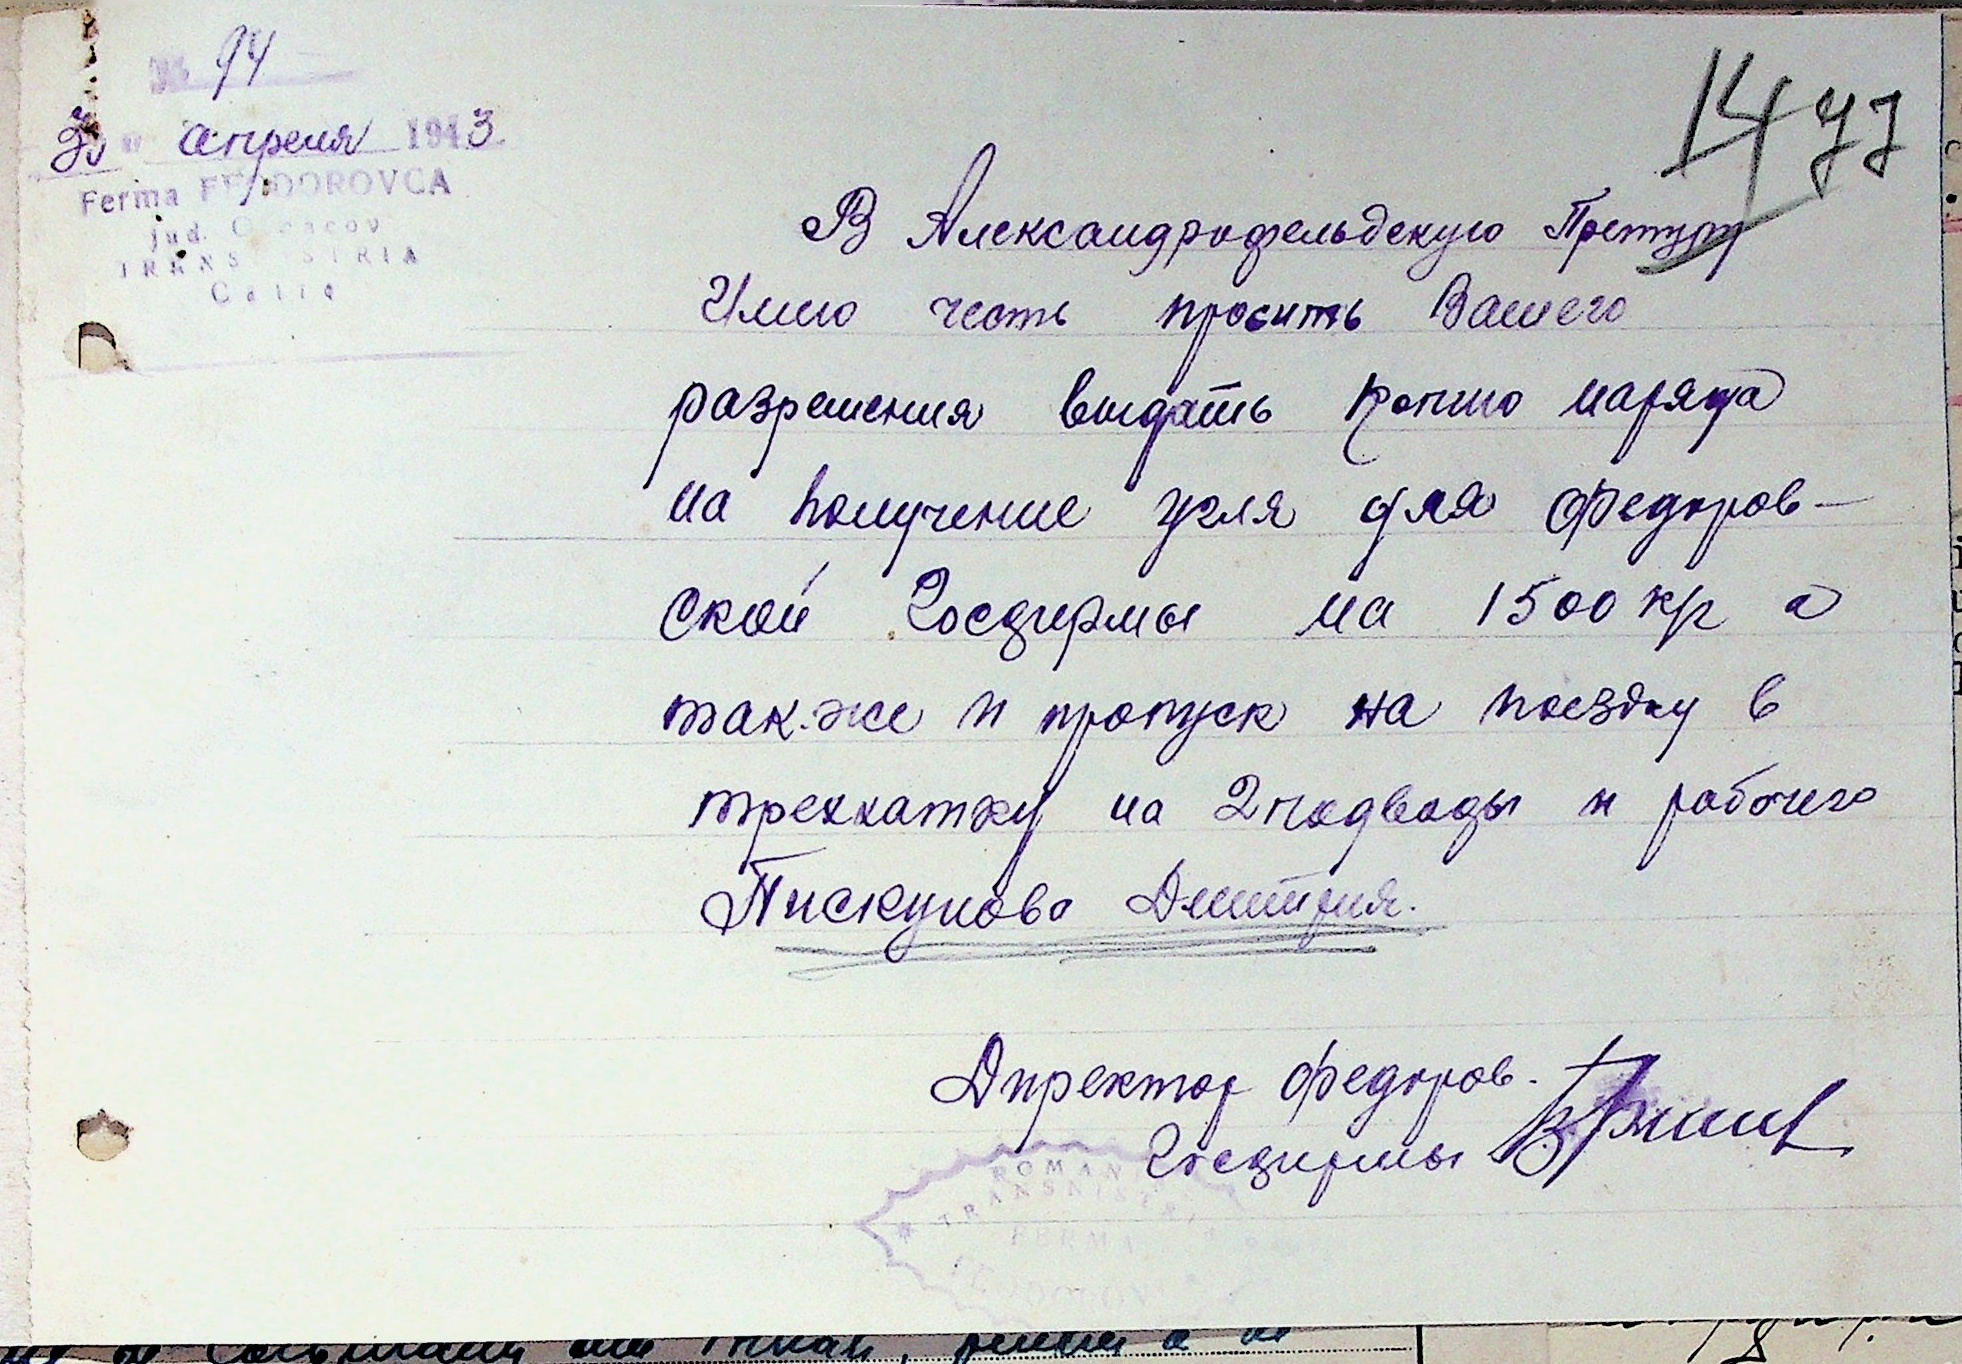 № 94
30 " апреля 1943.
Ferma FEODOROVCA
jud. Oceacov
TRANSNISTRIA
14 77
В Александрофельдскую Претуру
Имею честь просить Вашего
разрешения выдать копию наряда
на получение угля для Федоров-
ской Госфермы на 1500 кг а
так-же и пропуск на поездку в
трехатку на 2 подводы и рабочего
Пискунова Дмитрия.
Директор Федоров.
Госфермы
ROMANIA
TRANSNISTRIA
FERMA
FEODOROV